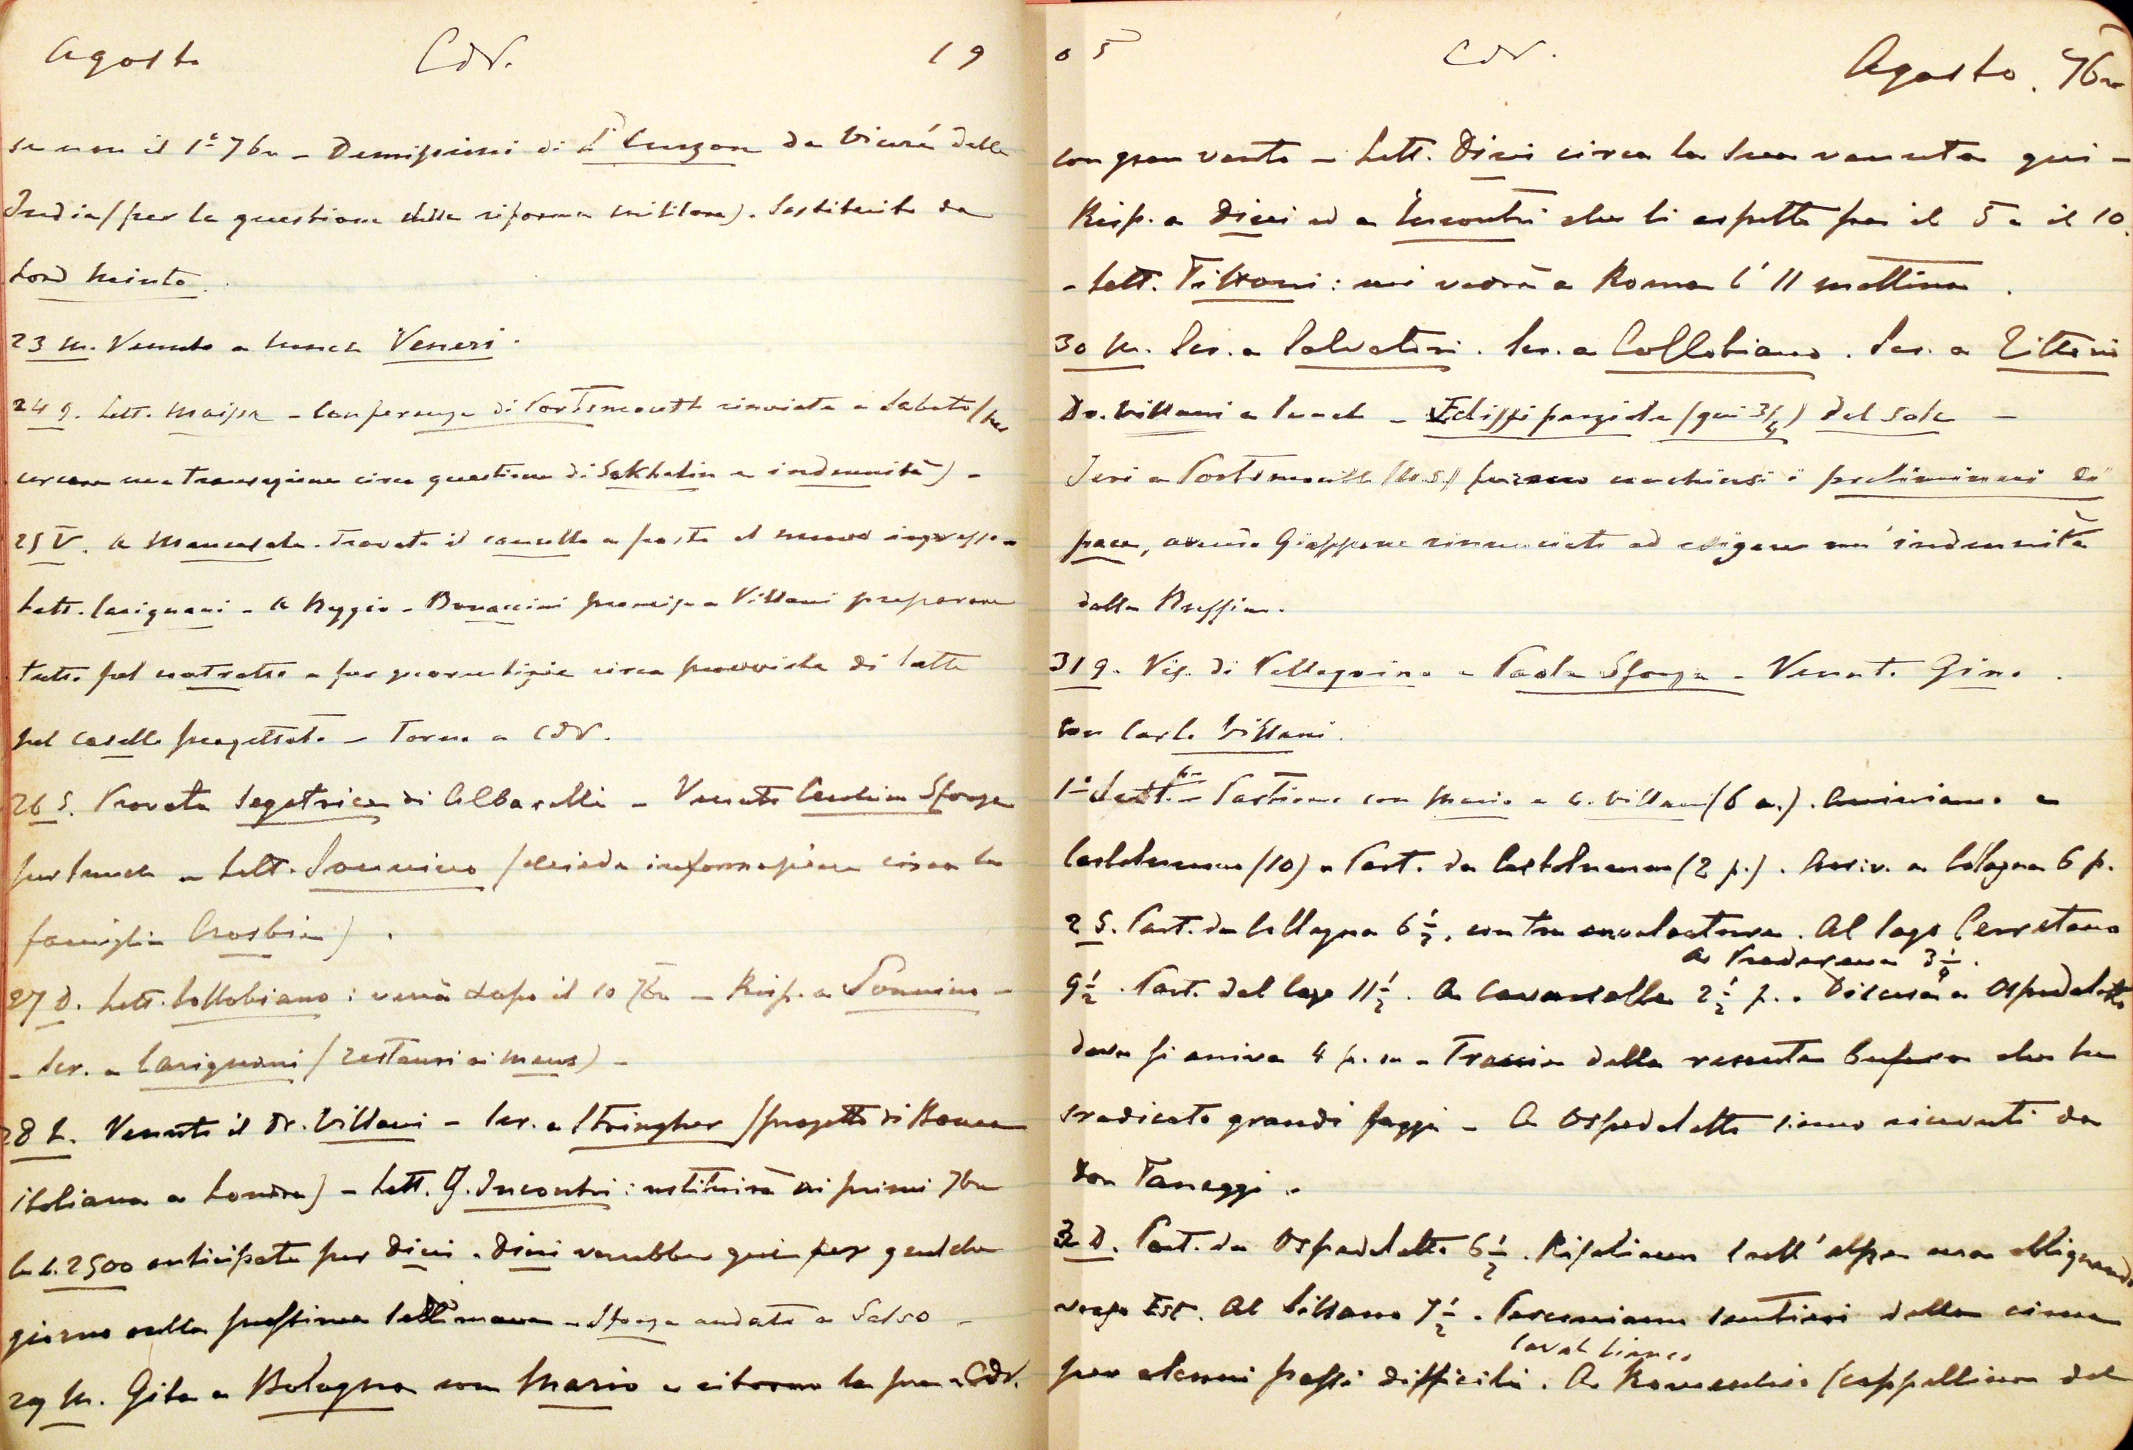 Agosto CdV. 19
se non il 1º 7bre - Demissioni di Ld Curzon da Viceré delle
Indie (per la questione della riforma militare). Sostituito da
Lord Minto.
23 M. Venuto a lunch Veneri.
24 g. Lett. - Conferenza di Portsmouth rinviata a Sabato (per
cercare una transazione circa questione di Sakhalin e indennità) -
25 V. A Mancasale. Trovato il cancello a posto al nuovo ingresso -
Lett. Carignani - A Reggio - Bonaccini promise a Villani preparare
tutto pel contratto e far guarentigie circa provvista di latte
pel casello progettato - Torno a CdV.
26 S. Provata segatrice di Albarelli - Venuti Sforza
per lunch - Lett. Sonnino (chiede informazione circa la
famiglia).
27 D. Lett. Collobiano: verrà dopo il 10 7bre - Risp. a Sonnino -
- Scr. a Carignani (restauri ai) -
28 L. Venuto il Dr. Villani - Scr. a Stringher (progetto di Banca
italiana a Londra) - Lett. G. Incontri: restituirà ai primi 7bre
le L. 2500 anticipate per Dini. Dini verrebbe qui per qualche
giorno nella prossima settimana - Sforza andato a Salso -
29 M. Gita a Bologna con Mario e ritorno la sera a CdV.
05 CdV. Agosto. 7bre
con gran vento - Lett. Dini circa la sua venuta qui -
Risp. a Dini ed a Incontri che li aspetto fra il 5 e il 10.
- Lett. Tittoni: mi vedrà a Roma l'11 mattina.
30 M. Scr. a Salvatori. Scr. a Collobiano. Scr. a Tittoni
Dr. Villani a lunch - Eclissi parziale (qui 3/4) del sole -
Ieri a Portsmouth (U.S.) furono conchiusi i preliminari di
pace, avendo Giappone rinunciato ad esigere un'indennità
dalla Russia.
31 g. Vis. di Pellegrino e Paola Sforza - Venuto Gino
con Carlo Villani.
1º Sett. - Partiamo con Mario e C. Villani (6 a.). Arriviamo a
Castelnuovo (10) - Part. da Castelnuovo (2 p.). Arriv. a Collagna 6 p.
2 S. Part. da Collagna 6 1/2, con tre cavalcature. Al lago Cerretano
A Pradarena 3 1/4.
9 1/2. Part. dal lago 11 1/2. A 2 1/2 p. - Discesa a Ospedaletto
dove si arriva 4 p. m - Traccie della recente bufera che ha
sradicato grandi faggi - A Ospedaletto siamo ricevuti da
Don Taneggi.
3 D. Part. da Ospedaletto 6 1/2. Risaliamo sull'alpe ma obliquando
verso Est. Al 7 1/2. Percorriamo sentieri della cima
Cavalbianco
per alcuni passi difficili. A (cappellina del